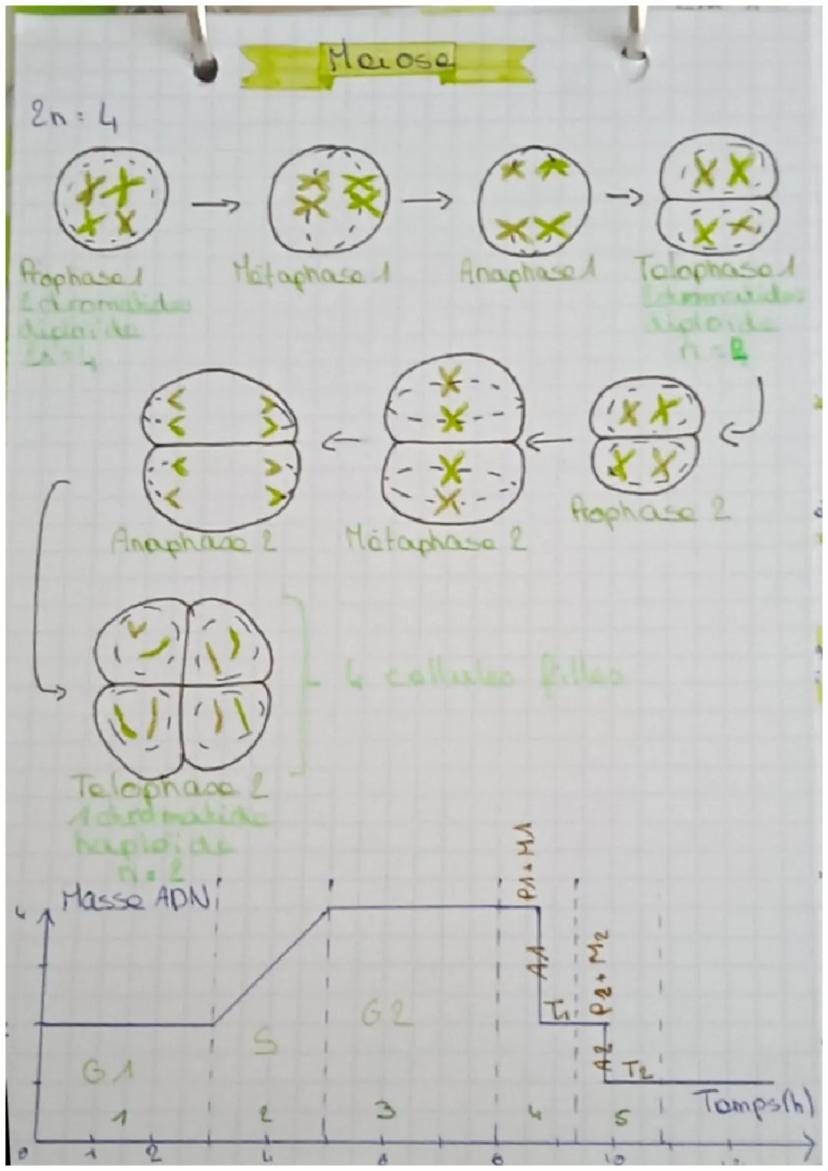 Meiose
2n = 4
Prophase 1
2 chromatides
diploïde
2n = 4
Métaphase 1
Anaphase 1
Telophase 1
2 chromatides
diploïde
n = 2
Anaphase 2
Métaphase 2
Prophase 2
4 cellules filles
Telophase 2
1 chromatide
haploïde
n = 2
Masse ADN
4
P1 + M1
A1
T1
P2 + M2
A2
T2
G1
S
G2
1
2
3
4
5
Temps (h)
0
1
2
4
6
8
10
12